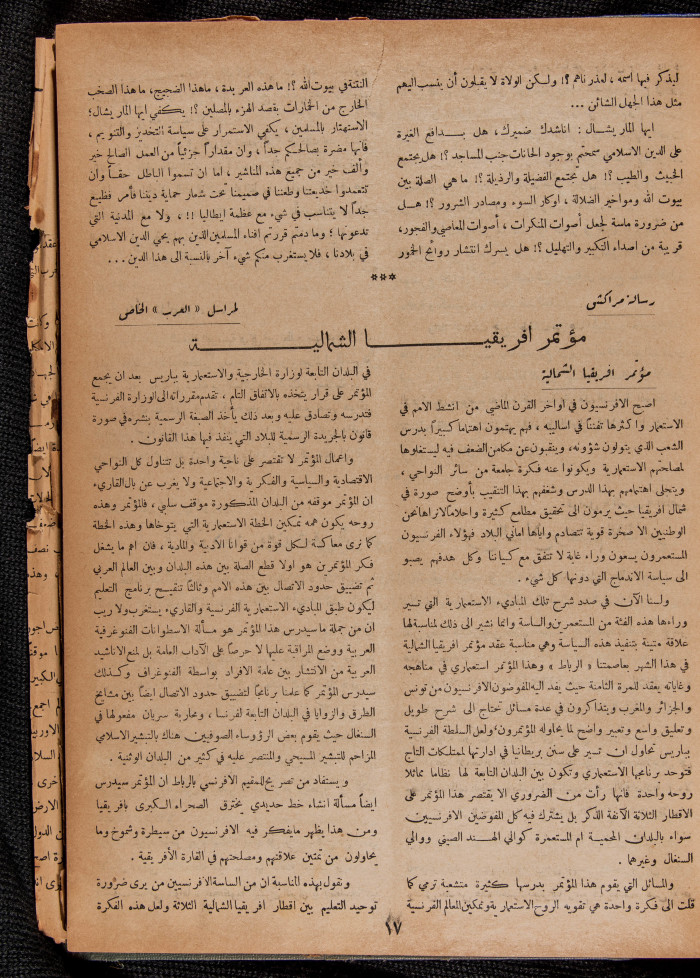 ليذكر فيها اسمه ، لعذر ناهم ؟! ولكن الولاة لا يقبلون أن ينسب اليهم
مثل هذا الجهل الشائن ...
ايها المار يشال : اناشدك ضميرك ، هل بدافع الغيرة
على الدين الاسلامي سمحتم بوجود الحانات جنب المساجد ؟! هل يجتمع
الخبيث والطيب ؟! هل تجتمع الفضيلة والرذيلة ؟! ما هي الصلة بين
بيوت الله ومواخير الضلالة ، اوكار السوء ومصادر الشرور ؟! هل
من ضرورة ماسة لجعل أصوات المنكرات ، أصوات المعاصي والفجور،
قريبة من اصداء التكبير والتهليل ؟! هل يسرك انتشار روائح الخمور
النتنة في بيوت الله ؟! ما هذه العربدة ، ماهذا الضجيج، ماهذا الصخب
الخارج من الخمارات بقصد الهزء بالمصلين ؟! يكفي ايها المار يشال ؛
الاستهتار بالمسلمين ، يكفي الاستمرار على سياسة التخدير والتنويم ،
فانها مضرة بصالحكم جداً ، وان مقداراً جزئياً من العمل الصالح خير
وألف خير من جميع هذه المناشير ، اما ان تسموا الباطل حقاً وان
تتعمدوا خديعتنا وطعننا في صميمنا تحت شعار حماية ديننا فأمر فظيع
جداً لا يتناسب في شيء مع عظمة ايطاليا !! ، ولا مع المدنية التي
تدعونها ؛ وما دمتم قررتم افناء المسلمين الذين بهم يحي الدين الاسلامي
في بلادنا ، فلا يستغرب منكم شيء آخر بالنسبة الى هذا الدين ...
***
رسالة مراكش
لمراسل « العرب » الخاص
مؤتمر افريقيا الشمالية
مؤتمر افريقيا الشمالية
اصبح الافرنسيون في اواخر القرن الماضي من انشط الامم في
الاستعمار واكثرها تفننا في اساليبه ، فهم يهتمون اهتماما كبيراً بدرس
الشعب الذي يتولون شؤونه، وينقبون عن مكامن الضعف فيه ليستغلوها
لمصالحهم الاستعمارية ويكونوا عنه فكرة جامعة من سائر النواحي ،
ويتجلى اهتمامهم بهذا الدرس وشغفهم بهذا التنقيب بأوضح صورة في
شمال افريقيا حيث يرمون الى تحقيق مطامع كثيرة واحلام لا نراها نحن
الوطنيين الا صخرة قوية تتصادم واياها اماني البلاد فهؤلاء الفرنسيون
المستعمرون يسعون وراء غاية لا تتفق مع كياننا وكل هدفهم يصبو
الى سياسة الاندماج التي دونها كل شيء .
ولسنا الآن في صدد شرح تلك المبادىء الاستعمارية التي تسير
وراءها هذه الفئة من المستعمرين والساسة وانما نشير الى ذلك لمناسبة لها
علاقة متينة بتنفيذ هذه السياسة وهي مناسبة عقد مؤتمر افريقيا الشمالية
في هذا الشهر بعاصمتنا « الرباط » وهذا المؤتمر استعماري في مناهجه
وغاياته يعقد للمرة الثامنة حيث يفد اليه المفوضون الافرنسيون من تونس
والجزائر والمغرب ويتذاكرون في عدة مسائل تحتاج الى شرح طويل
وتعليق واسع وتعبير واضح لما يحاوله المؤتمرون؛ ولعل السلطة الفرنسية
بباريس تحاول ان تسير على سنن بريطانيا في ادارتها لممتلكات التاج
فتوحد برنامجها الاستعماري وتكون بين البلدان التابعة لها نظاما مماثلا
روحه واحدة فانها رأت من الضروري الا يقتصر هذا المؤتمر على
الاقطار الثلاثة الآنفة الذكر بل يشترك فيه كل المفوضين الافرنسيين
سواء بالبلدان المحمية ام المستعمرة كوالي الهند الصيني ووالي
السنغال وغيرهما .
والمسائل التي يقوم هذا المؤتمر بدرسها كثيرة متشعبة ترمي كما
قلت الى فكرة واحدة هي تقويه الروح الاستعمارية وتمكين المعالم الفرنسية
في البلدان التابعة لوزارة الخارجية والاستعمارية بباريس بعد ان يجمع
المؤتمر على قرار يتخذه بالاتفاق التام ، تقدم مقرراته الى الوزارة الفرنسية
فتدرسه وتصادق عليه وبعد ذلك يأخذ الصبغة الرسمية بنشره في صورة
قانون بالجريدة الرسمية للبلاد التي ينفذ فيها هذا القانون .
واعمال المؤتمر لا تقتصر على ناحية واحدة بل تتناول كل النواحي
الاقتصادية والسياسية والفكرية والاجتماعية ولا يغرب عن بال القاريء
ان المؤتمر موقفه من البلدان المذكورة موقف سلبي ، فالمؤتمر وهذه
روحه يكون همه تمكين الخطة الاستعمارية التي يتوخاها وهذه الخطة
كما ترى معاكسة لكل قوة من قوانا الادبية والمادية ، فان اهم ما يشغل
فكر المؤتمرين هو اولا قطع الصلة بين هذه البلدان وبين العالم العربي
ثم تضييق حدود الاتصال بين هذه الامم وثالثاً تنقيح برنامج التعليم
ليكون طبق المباديء الاستعمارية الفرنسية والقاريء يستغرب ولا ريب
ان من جملة ما سيدرس هذا المؤتمر هو مسألة الاسطوانات الفنوغرفية
العربية ووضع المراقبة عليها لا حرصاً على الآداب العامة بل لمنع الاناشيد
العربية من الانتشار بين عامة الافراد بواسطة الفنوغراف وكذلك
سيدرس المؤتمر كما علمنا برنامجاً لتضييق حدود الاتصال ايضاً بين مشايخ
الطرق والزوايا في البلدان التابعة لفرنسا ، ومحاربة سريان مفعولها في
السنغال حيث يقوم بعض الرؤوساء الصوفيين هناك بالتبشير الاسلامي
المزاحم للتبشير المسيحي والمنتصر عليه في كثير من البلدان الوثنية .
ويستفاد من تصريح للمقيم الافرنسي بالرباط ان المؤتمر سيدرس
ايضاً مسألة انشاء خط حديدي يخترق الصحراء الكبرى بافريقيا
ومن هذا يظهر ما يفكر فيه الافرنسيون من سيطرة وشموخ وما
يحاولون من تمتين علاقتهم ومصلحتهم في القارة الأفريقية .
ونقول بهذه المناسبة ان من الساسة الافرنسيين من يرى ضرورة
توحيد التعليم بين اقطار افريقيا الشمالية الثلاثة ولعل هذه الفكرة
١٧